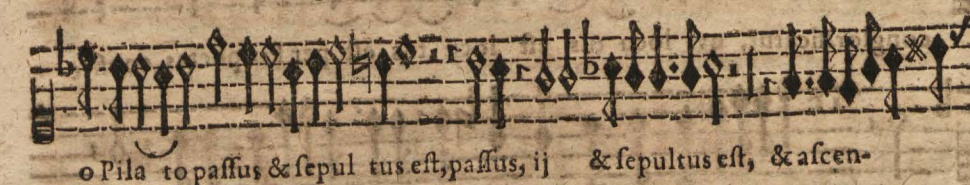 o Pila to paſſus & ſepul tus eſt, paſſus, ij & ſepultus eſt, & aſcen-